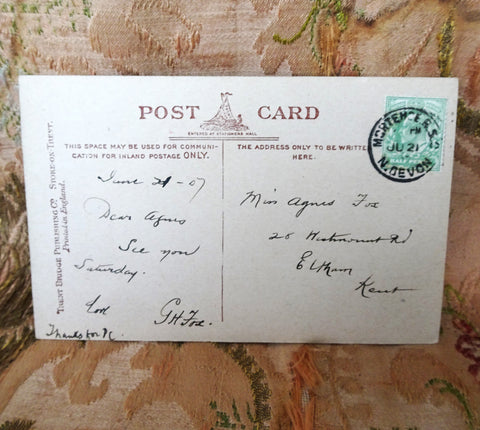 POST CARD
ENTERED AT STATIONERS HALL
THIS SPACE MAY BE USED FOR COMMUNI-
CATION FOR INLAND POSTAGE ONLY.
THE ADDRESS ONLY TO BE WRITTEN
HERE.
TRENT BRIDGE PUBLISHING CO. STOKE-ON-TRENT.
Printed in England.
June 21-07
Dear Agnes
See you
Saturday.
Love
G H Fox.
Thanks for PC.
Miss Agnes Fox
28 Westmount Rd
Eltham
Kent
MORTEHOE R.S.O
PM
JU 21
N.DEVON
HALF PENNY